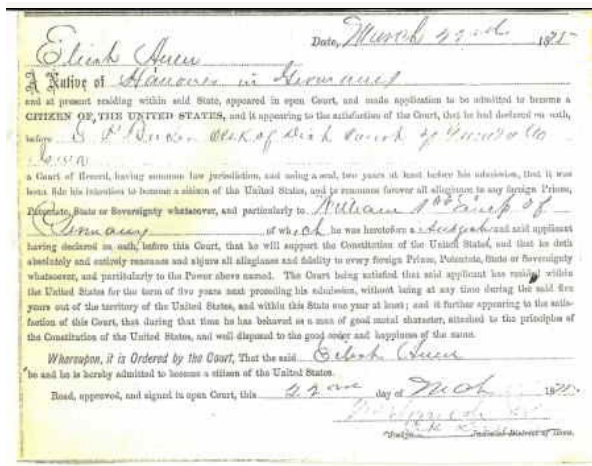 Date, March 22nd 1875
A Native of Hanover in Germany
and at present residing within said State, appeared in open Court, and made application to be admitted to become a
CITIZEN OF THE UNITED STATES, and it appearing to the satisfaction of the Court, that he had declared on oath,
before Clerk of Dist Court of
Iowa
a Court of Record, having common law jurisdiction, and using a seal, two years at least before his admission, that it was
bona fide his intention to become a citizen of the United States, and to renounce forever all allegiance to any foreign Prince,
Potentate, State or Sovereignty whatsoever, and particularly to William 1st Emp of
Germany of which he was heretofore a subject and said applicant
having declared on oath, before this Court, that he will support the Constitution of the United States, and that he doth
absolutely and entirely renounce and abjure all allegiance and fidelity to every foreign Prince, Potentate, State or Sovereignty
whatsoever, and particularly to the Power above named. The Court being satisfied that said applicant has resided within
the United States for the term of five years next preceding his admission, without being at any time during the said five
years out of the territory of the United States, and within this State one year at least; and it further appearing to the satis-
faction of this Court, that during that time he has behaved as a man of good moral character, attached to the principles of
the Constitution of the United States, and well disposed to the good order and happiness of the same.
Whereupon, it is Ordered by the Court, That the said
be and he is hereby admitted to become a citizen of the United States.
Read, approved, and signed in open Court, this 22nd day of Mch 1875
Judge Judicial District of Iowa.